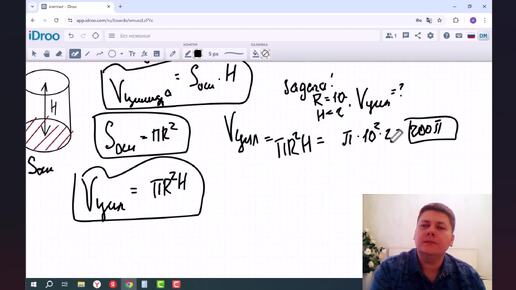 интеграл - iDroo
app.idroo.com/ru/boards/
iDroo
Без названия
1
DM
5 px
H
Sосн
Vцилиндра = Sосн · H
Sосн = πR²
Vцил = πR²H
Задача:
R = 10
H = 2
Vцил = ?
Vцил = πR²H = π · 10² · 2
200π